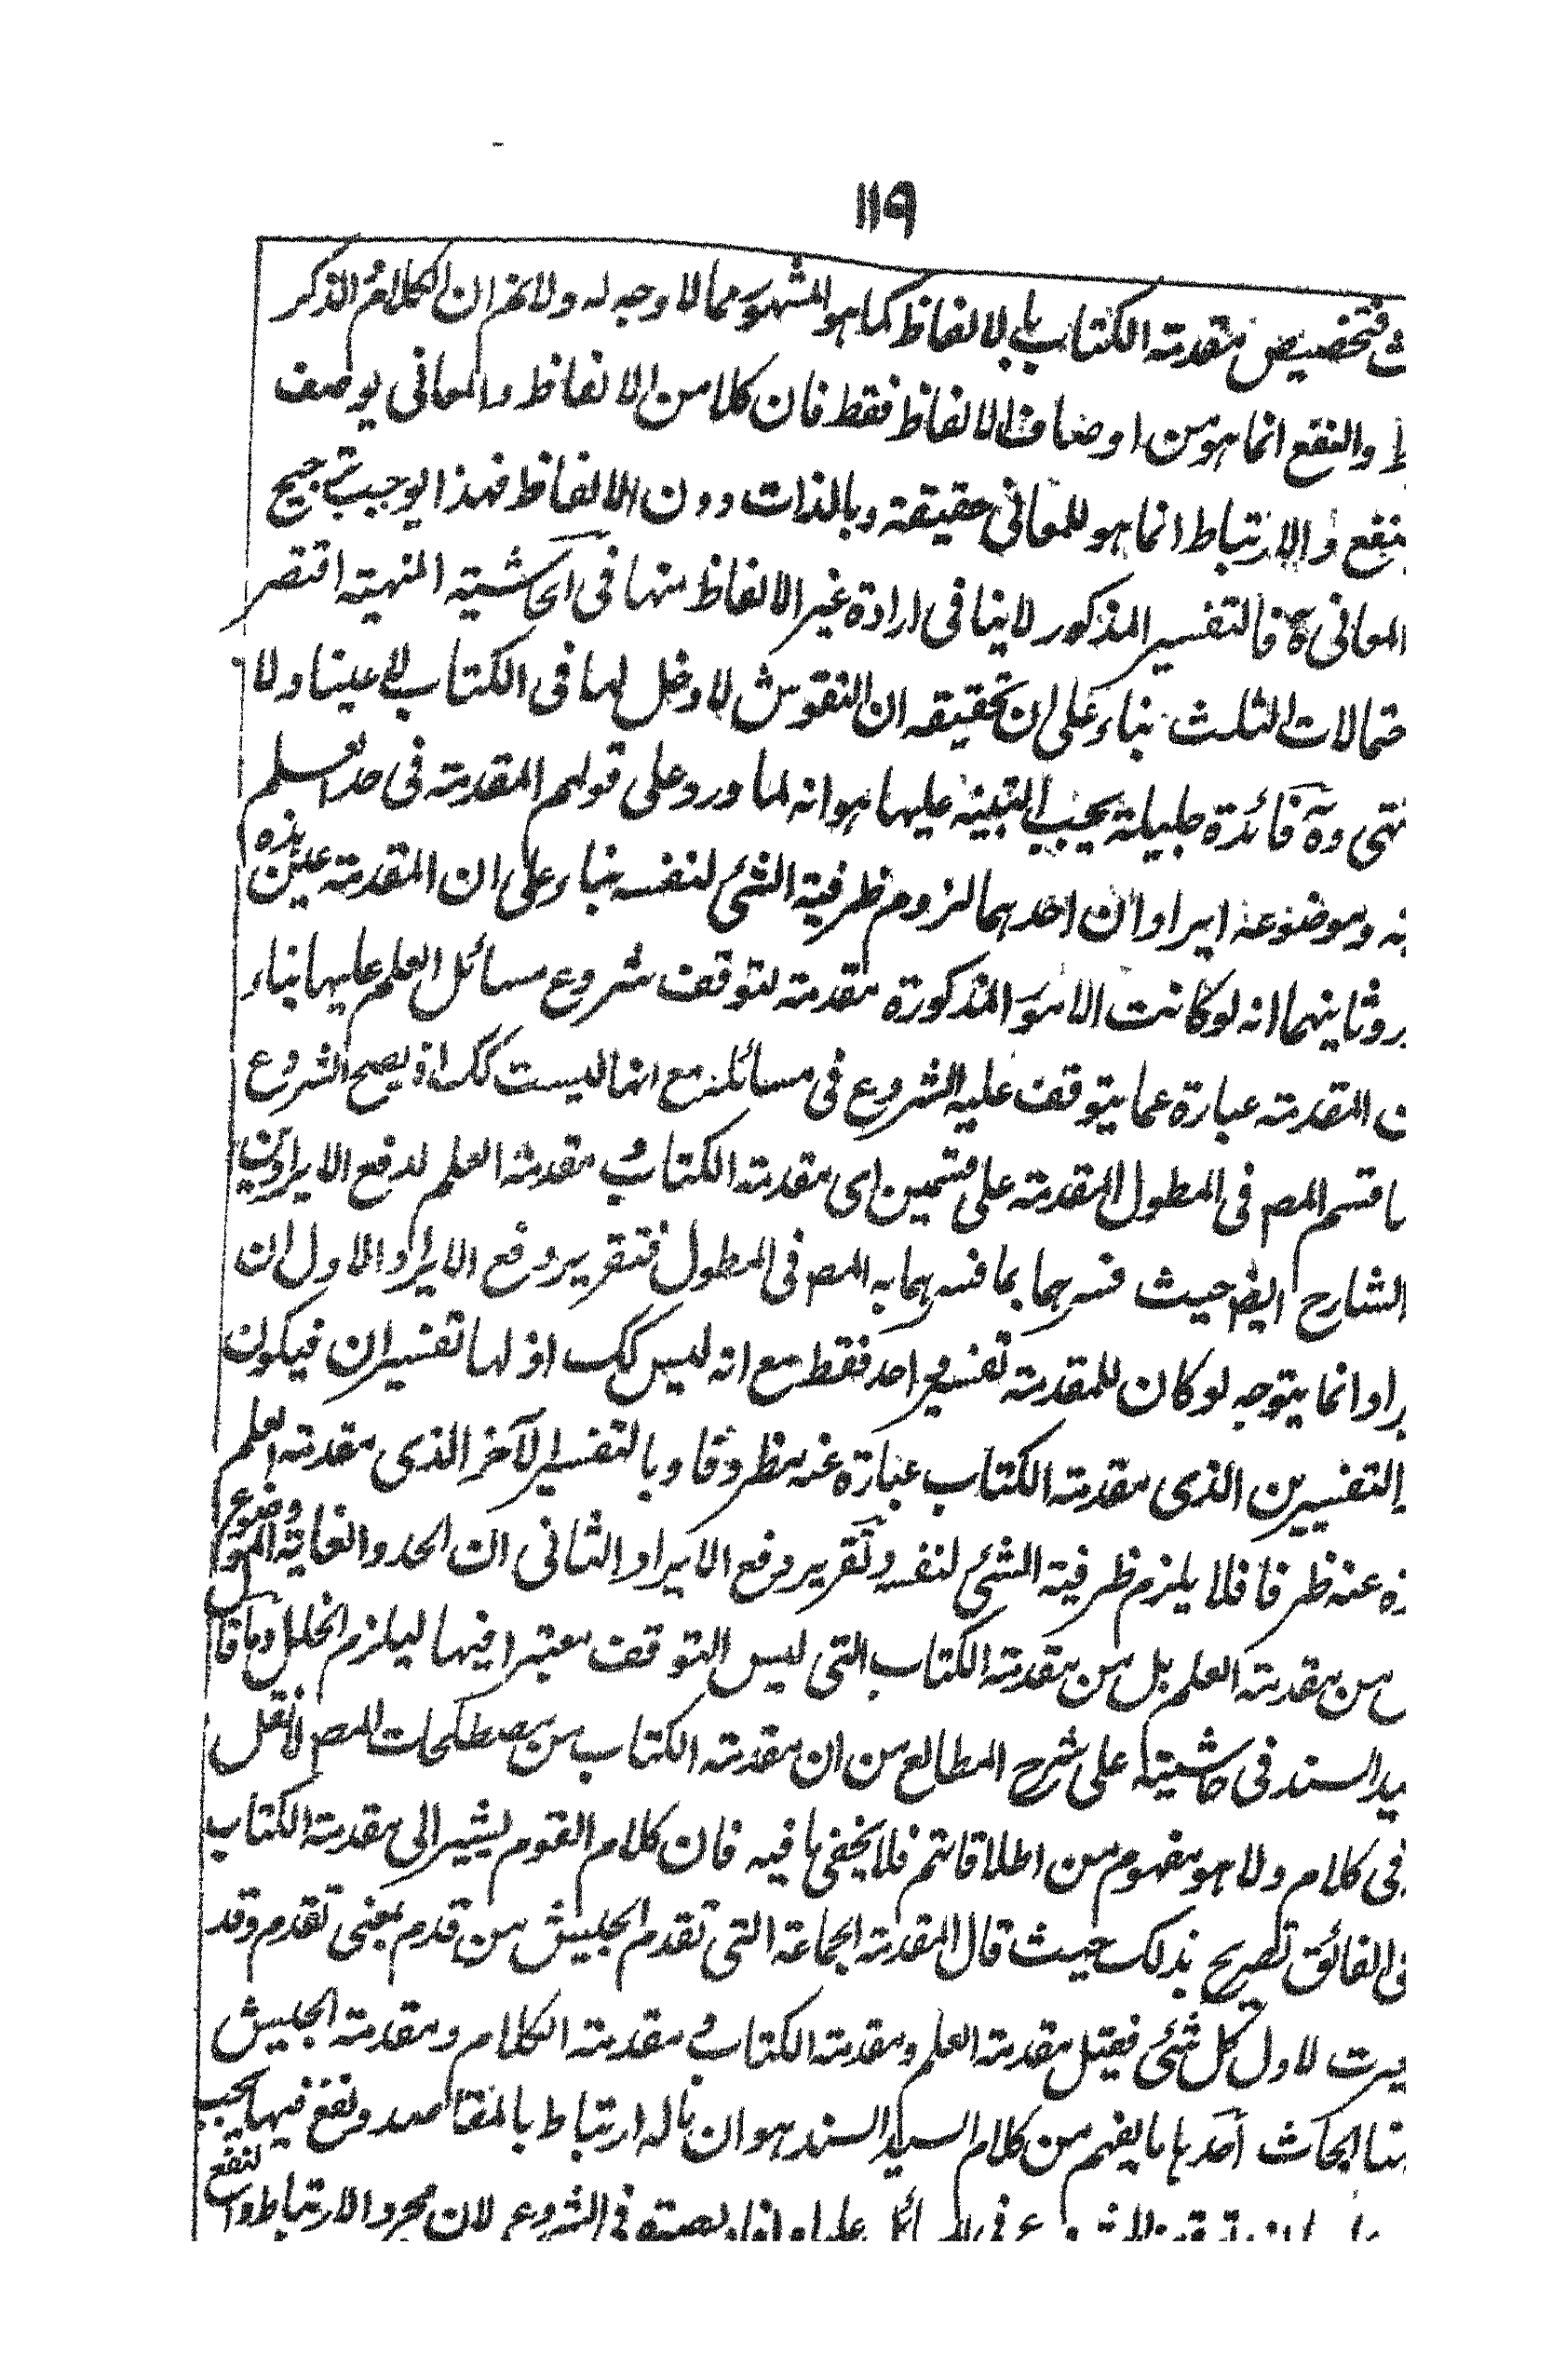 ١١٩
فتخصيص مقدمة الكتاب بالالفاظ كما هو المشهور مما لا وجه له ولانم ان الكلام الذكر
والنفع انما هو من اوصاف الالفاظ فقط فان كلا من الالفاظ والمعانى يوصف
والارتباط انما هو للمعانى حقيقة وبالذات دون الالفاظ فهذا يوجب ترجيح
المعانى فالتفسير المذكور لا ينافى ارادة غير الالفاظ منها فى الحاشية المنهية اقتصر
الثلث بناء على ان تحقيقه ان النقوش لا دخل لها فى الكتاب لا عينا ولا
فائدة جليلة يجب التنبيه عليها هو انه لما ورد على قولهم المقدمة فى حد العلم
وموضوعه ايرادان احدهما لزوم ظرفية الشئ لنفسه بناء على ان المقدمة عين هذه
وثانيهما انه لو كانت الامور المذكورة مقدمة لتوقف شروع مسائل العلم عليها بناء
المقدمة عبارة عما يتوقف عليه الشروع فى مسائله مع انها ليست كك اذ يصح الشروع
قسم المص فى المطول المقدمة على قسمين اى مقدمة الكتاب و مقدمة العلم لدفع الايرادين
الشارح ايضا حيث فسرهما بما فسرهما به المص فى المطول فتقرير دفع الايراد الاول ان
انما يتوجه لو كان للمقدمة تفسير واحد فقط مع انه ليس كك اذ لها تفسيران فيكون
التفسيرين الذى مقدمة الكتاب عبارة عنه مظروفا وبالتفسير الآخر الذى مقدمة العلم
عنه ظرفا فلا يلزم ظرفية الشئ لنفسه وتقرير دفع الايراد الثانى ان الحد والغاية والموضوع
من مقدمة العلم بل من مقدمة الكتاب التى ليس التوقف معتبرا فيها ليلزم الخلل وما قال
السند فى حاشيته على شرح المطالع من ان مقدمة الكتاب من مصطلحات المص لا نقل
فى كلام ولا هو مفهوم من اطلاقاتهم فلا يخفى ما فيه فان كلام القوم يشير الى مقدمة الكتاب
الفائق تصريح بذلك حيث قال المقدمة الجماعة التى تقدم الجيش من قدم بمعنى تقدم وقد
لاول كل شئ فقيل مقدمة العلم ومقدمة الكتاب و مقدمة الكلام ومقدمة الجيش
ابحاث احدها ما يفهم من كلام السيد السند هو ان ما له ارتباط بالمقاصد ونفع فيها يجب
فى الشروع لان مجرد الارتباط والنفع